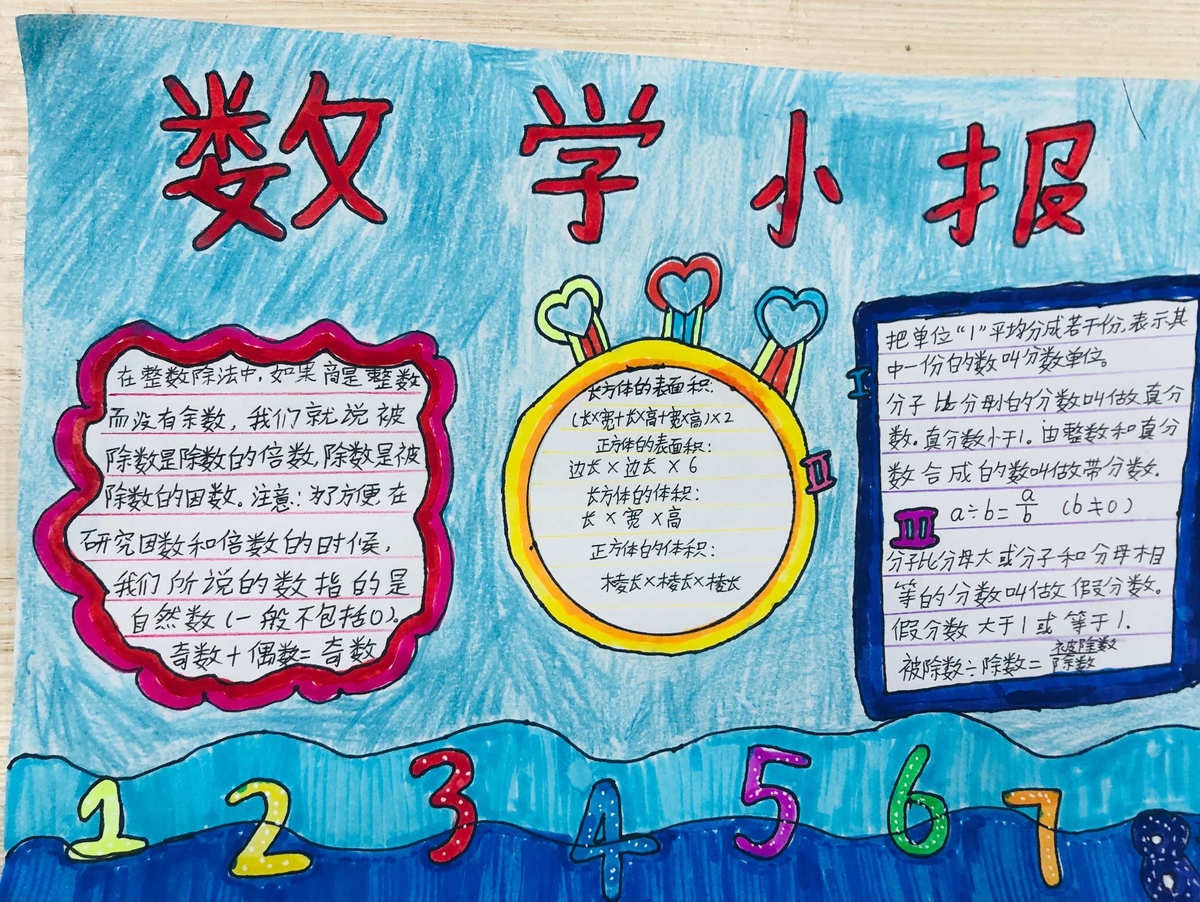 数学小报
在整数除法中,如果商是整数
而没有余数,我们就说被
除数是除数的倍数,除数是被
除数的因数。注意:为了方便在
研究因数和倍数的时候,
我们所说的数指的是
自然数(一般不包括0)。
奇数+偶数=奇数
长方体的表面积:
(长×宽+长×高+宽×高)×2
正方体的表面积:
边长×边长×6
长方体的体积:
长×宽×高
正方体的体积:
棱长×棱长×棱长
I
II
把单位“1”平均分成若干份,表示其
中一份的数叫分数单位。
分子比分母小的分数叫做真分
数.真分数小于1.由整数和真分
数合成的数叫做带分数.
III
a÷b=a/b (b≠0)
分子比分母大或分子和分母相
等的分数叫做假分数。
假分数大于1或等于1.
被除数÷除数=被除数/除数
1 2 3 4 5 6 7 8